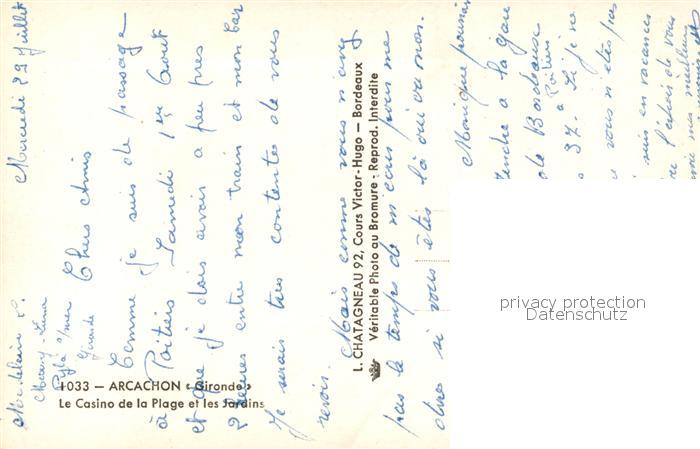 Mercredi 29 Juillet
Chers Amis
Comme je suis de passage
à Poitiers Samedi 1er Aout
et que je dois avoir a peu pres
2 heures entre mon train et mon car
Je serais tres contente de vous
revoir. Mais comme vous n'avez
pas le temps de m'ecrire pour me
dire si vous êtes là oui ou non.
Monique pourrait
a la gare
de Bordeaux
a Poitiers
37. Si je ne
vous n'êtes pas
suis en vacances
Pyla s/mer
Gironde
1033 — ARCACHON « Gironde »
Le Casino de la Plage et les Jardins
L. CHATAGNEAU 92, Cours Victor-Hugo — Bordeaux
Véritable Photo au Bromure - Reprod. Interdite
privacy protection
Datenschutz